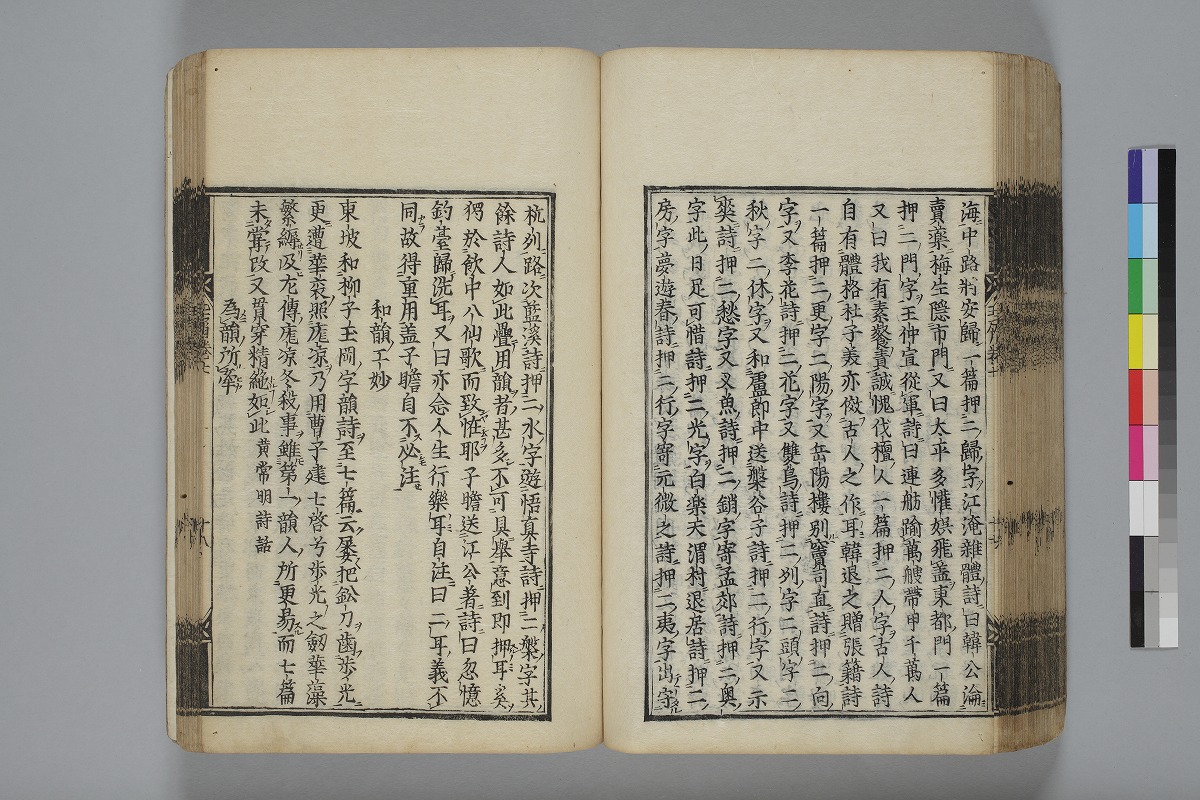 海中路將安歸一篇押二歸字江淹雜體詩曰韓公淪
賣藥梅生隱市門又曰太平多懽娯飛蓋東都門一篇
押二門字王仲宣從軍詩曰連舫踰萬艘帶甲千萬人
又曰我有素餐責誠愧伐檀人一篇押二人字古人詩
自有體格杜子美亦傚古人之作耳韓退之贈張籍詩
一篇押二更字二陽字又岳陽樓别竇司直詩押二向
字又李花詩押二花字又雙鳥詩押二列字二頭字二
秋字二休字又和盧郎中送槃谷子詩押二行字又示
爽詩押二愁字又叉魚詩押二銷字寄孟郊詩押二奥
字此日足可惜詩押二光字白樂天渭村退居詩押二
房字夢遊春詩押二行字寄元微之詩押二夷字出字
杭列路次藍溪詩押二水字遊悟真寺詩押二槃字其
餘詩人如此疊用韻者甚多不可具舉意到即押耳奚
獨於飲中八仙歌而致恠耶子瞻送江公著詩曰忽憶
釣臺歸洗耳又曰亦念人生行樂耳自注曰二耳義不
同故得重用盖子瞻自不必注
和韻工妙
東坡和柳子玉岡字韻詩至七篇云屡把鈆刀齒歩光
更遭華衮照厖凉乃用曹子建七啓兮歩光之劔華藻
繁縟及左傳厖凉冬殺事雖第一韻人所更易而七篇
未甞改又貫穿精絶如此 黄常明詩話
為韻所牽